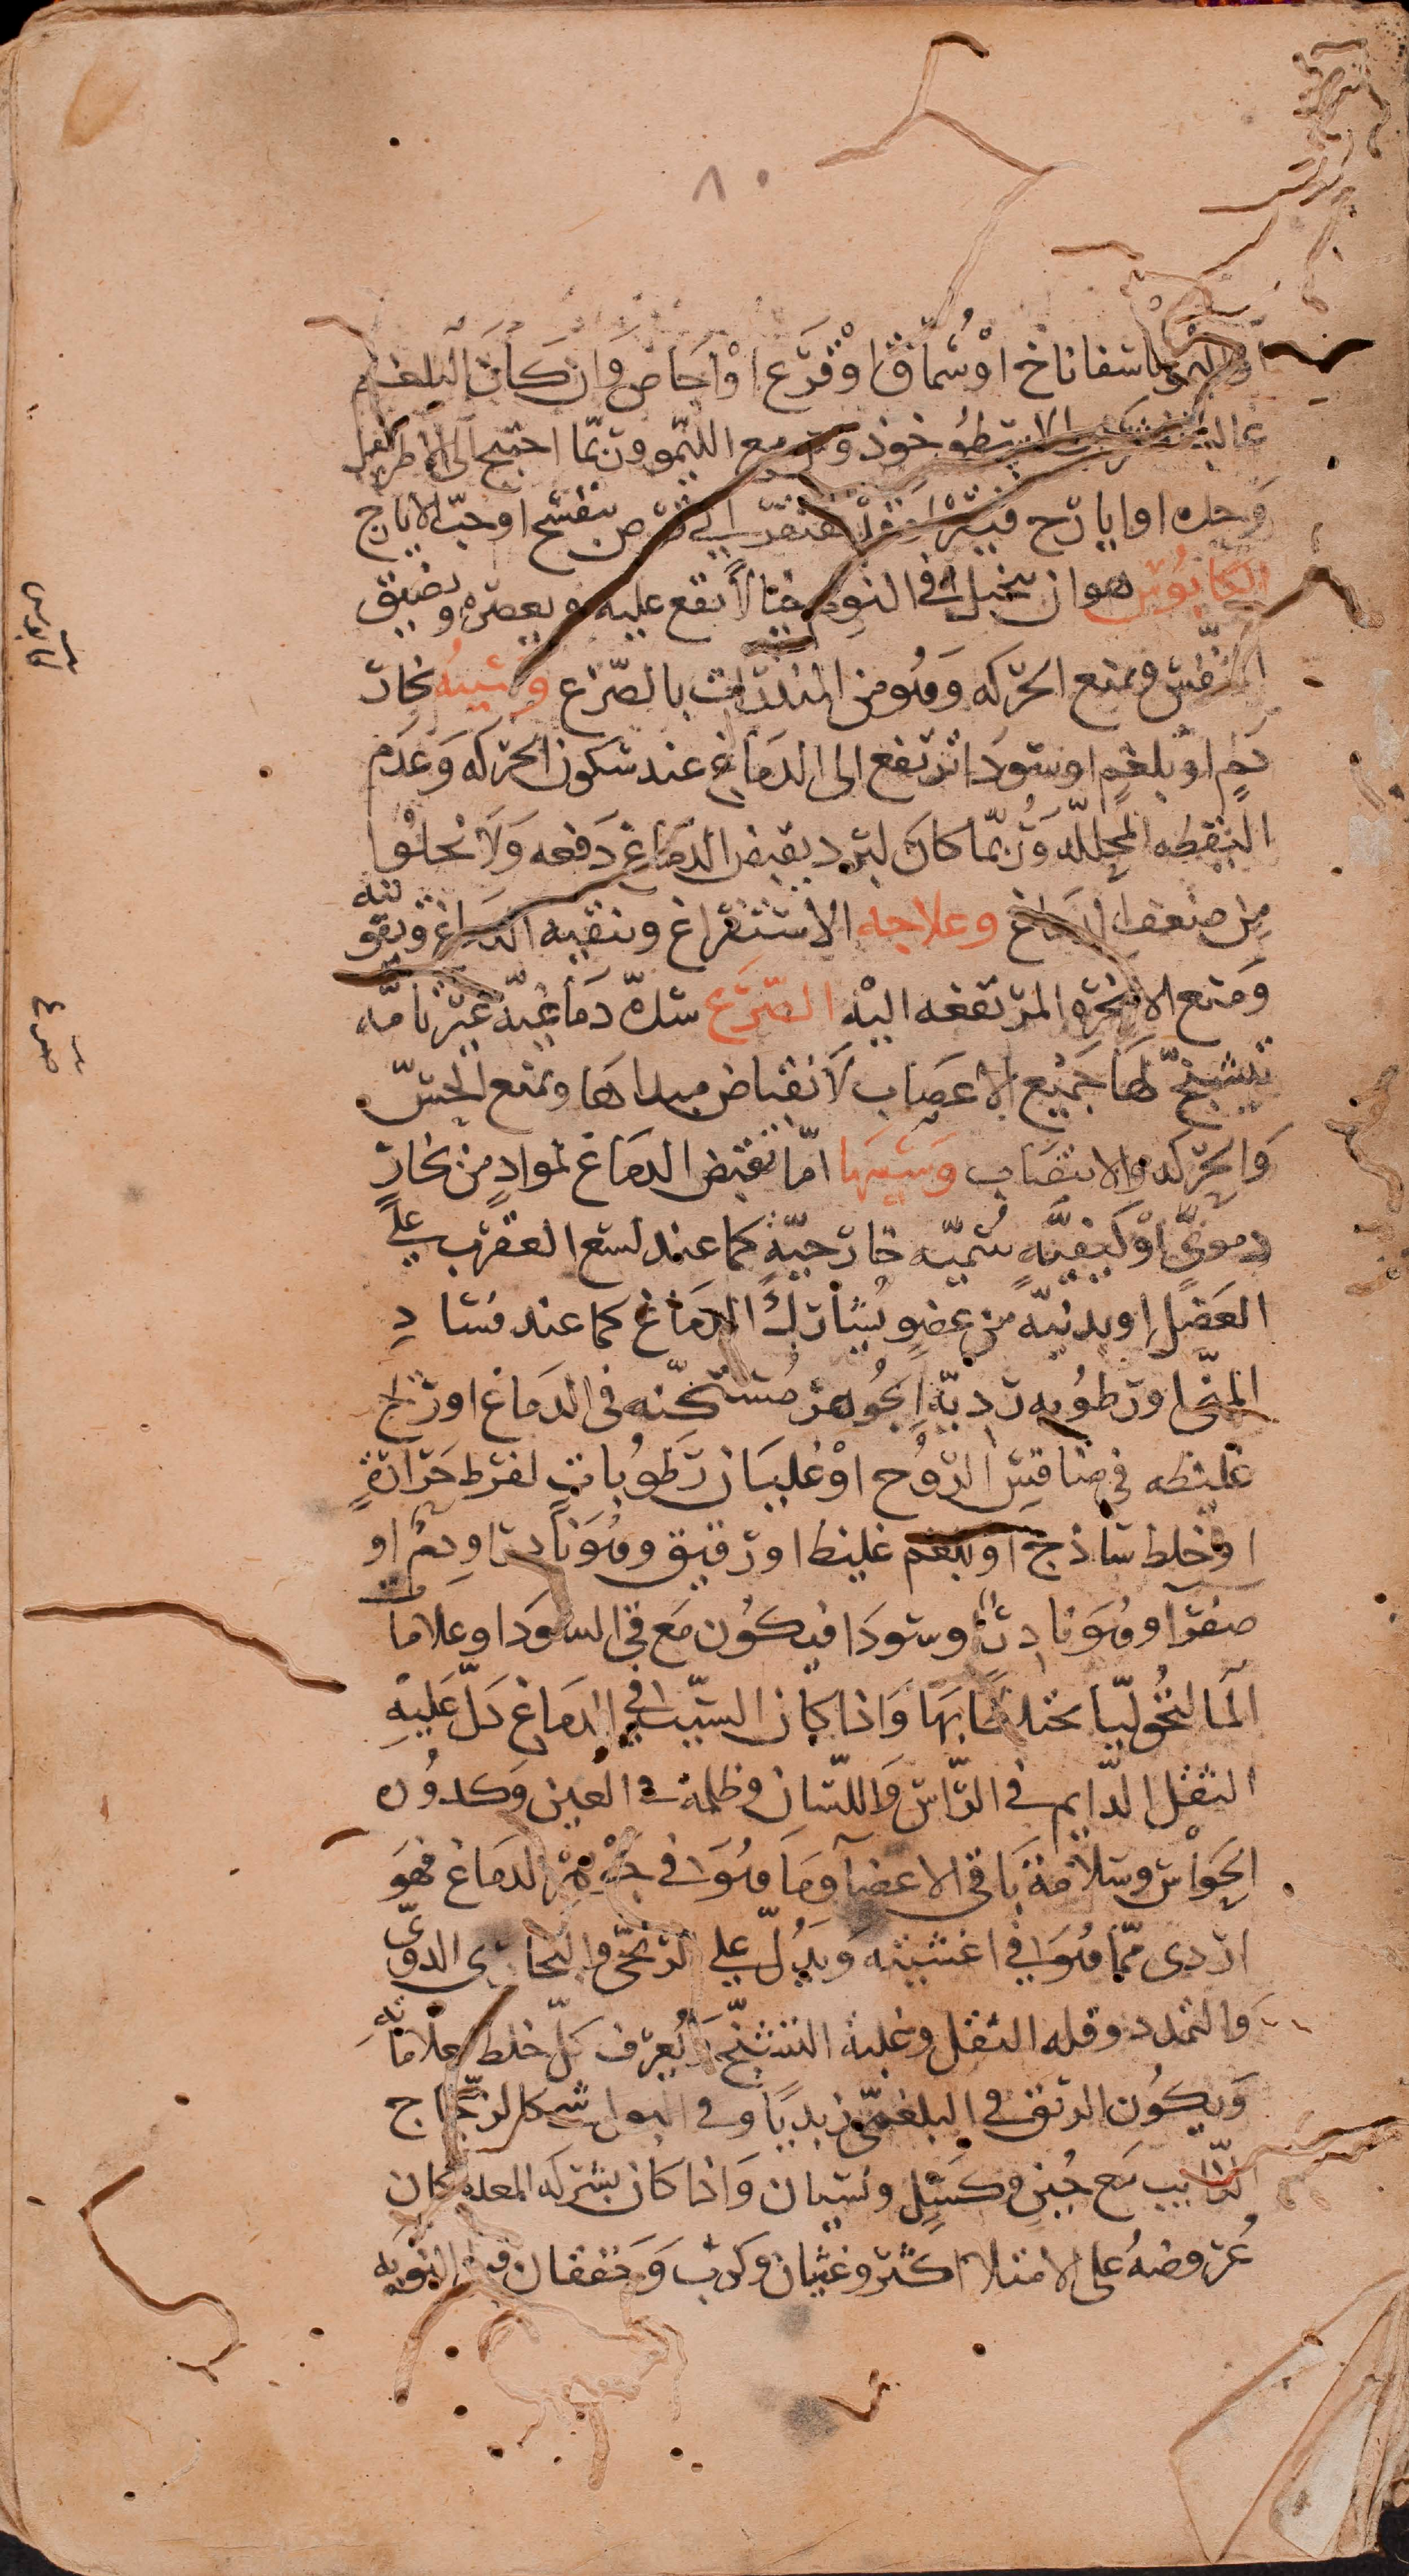 ٨٠
او اسفاناخ او سُمّاق او قَرَع او اجاص وَان كَان البلغم
غالبا الاسطُوخوذ مع الليمو وربّما احتيج الى الاطريفل
وَحده او ايارج فيقرا قرص بنفسج او حبّ الايارج
الكَابُوس هو ان يتخيل في النوم خيالا يقع عليه ويعصره ويضيق
النفس ويمنع الحركه وَهُو من المنذرات بالصّرَع وسَببُه بخار
دَمٍ او بلغمٍ او سودَا ترتفع الى الدمَاغ عند سكون الحركه وَعَدم
اليقظه المحللّه وَرُبّما كانَ لبرد يقبض الدمَاغ دَفعه وَلَا يخلوا
من ضعف الدماغ وعلاجه الاستفراغ وتنقيه الدمَاغ وتقويته
وَمنع الابخره المرتفعه اليْه الصّرَع سدّه دمَاغيّه غير تامّه
يتشنجّ لهَا جَميع الاعصَاب لانقباض مبداهَا ويمنع الحسّ
وَالحركه والانتصَاب وسَببهَا امّا تقبّض الدمَاغ لموادٍ من بخار
دموىّ اوْ كيفيَّه سُميّه خارجيّهٍ كما عند لسع العقرب على
العَضَل او بدنيّه من عضوٍ يُشارك الدمَاغ كما عند فسَادِ
المنىّ او رطوُبه رديّه الجُوهر مُستكنّه في الدمَاغ او ريح
غليظه في منافس الروُح اوْ غليَان رَطوُباتٍ لفرط حَرَارةٍ
او خلط سَاذج او بلغم غليظ او رقيق وهُوَ نادر او دم او
صفرآ وهُوَ نادرٌ او سودَا فيكُون مَع قي السودَا وعلامات
المَالنخُوليّا مختلطا بهَا وَاذا كان السّبب في الدمَاغ دَلّ عَليهِ
الثقل الدّايم في الرّاس وَاللّسَان وظلمة في العين وَكدوُره
الحَوَاس وسَلَامَة بَاقي الاعضآ وَمَا هُوَ في جَوْهر الدمَاغ فهَو
اردى ممّا هُوَ في اغشيته وَيَدُلّ على الرّيحىّ والبخارى الدوىّ
وَالتمدد وقله الثقل وغلبة التشنّج وَيُعرَف كلّ خلط بعلاماتهِ
وَيكُون الريق في البلغمىّ زبديًا وفي البول شكل الزجّاج
الذّايب مَع جُبنٍ وكسَلٍ ونسيان وَاذا كان بشركه المعده كان
عُروضهُ على الامتلا اكثر وغثيان وكرب وَخفقان النوبه
الكابوس
صرع